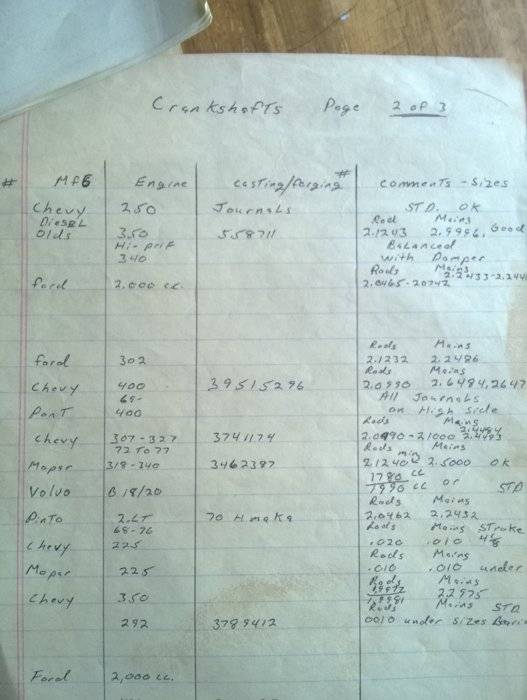 Crankshafts Page 2 of 3
# MFG Engine Casting/forging # Comments - Sizes
Chevy 250 Journals STD. OK
Diesel Rod Mains
Olds 350 558711 2.1243 2.9996, Good
Hi-prif Balanced
340 with Damper
Rods Mains
2.2433-2.244
Ford 2,000 cc. 2.0465-20472
Rods Mains
Ford 302 2.1232 2.2486
Rods Mains
Chevy 400 39515296 2.0990 2.6484, 2647
68- All Journals
Pont 400 on High side
Rods Mains
2.4484
Chevy 307-327 3741174 2.0990-21000 2.4483
72 To 77 Rods min Mains
Mopar 318-340 3462387 2.1240 2.5000 OK
1780 cc
Volvo B 18/20 1990 cc or STD
Rods Mains
Pinto 2.LT 70 HM 2.0462 2.2432
68-76 Rods Mains Stroke
Chevy 225 .020 .010 4 1/8
Rods Mains
Mopar 225 .010 .010 under
Rods Mains
Chevy 350 1.9981 2.2975
Rods Mains STD
292 3789412 0010 under sizes
Ford 2,000 cc.